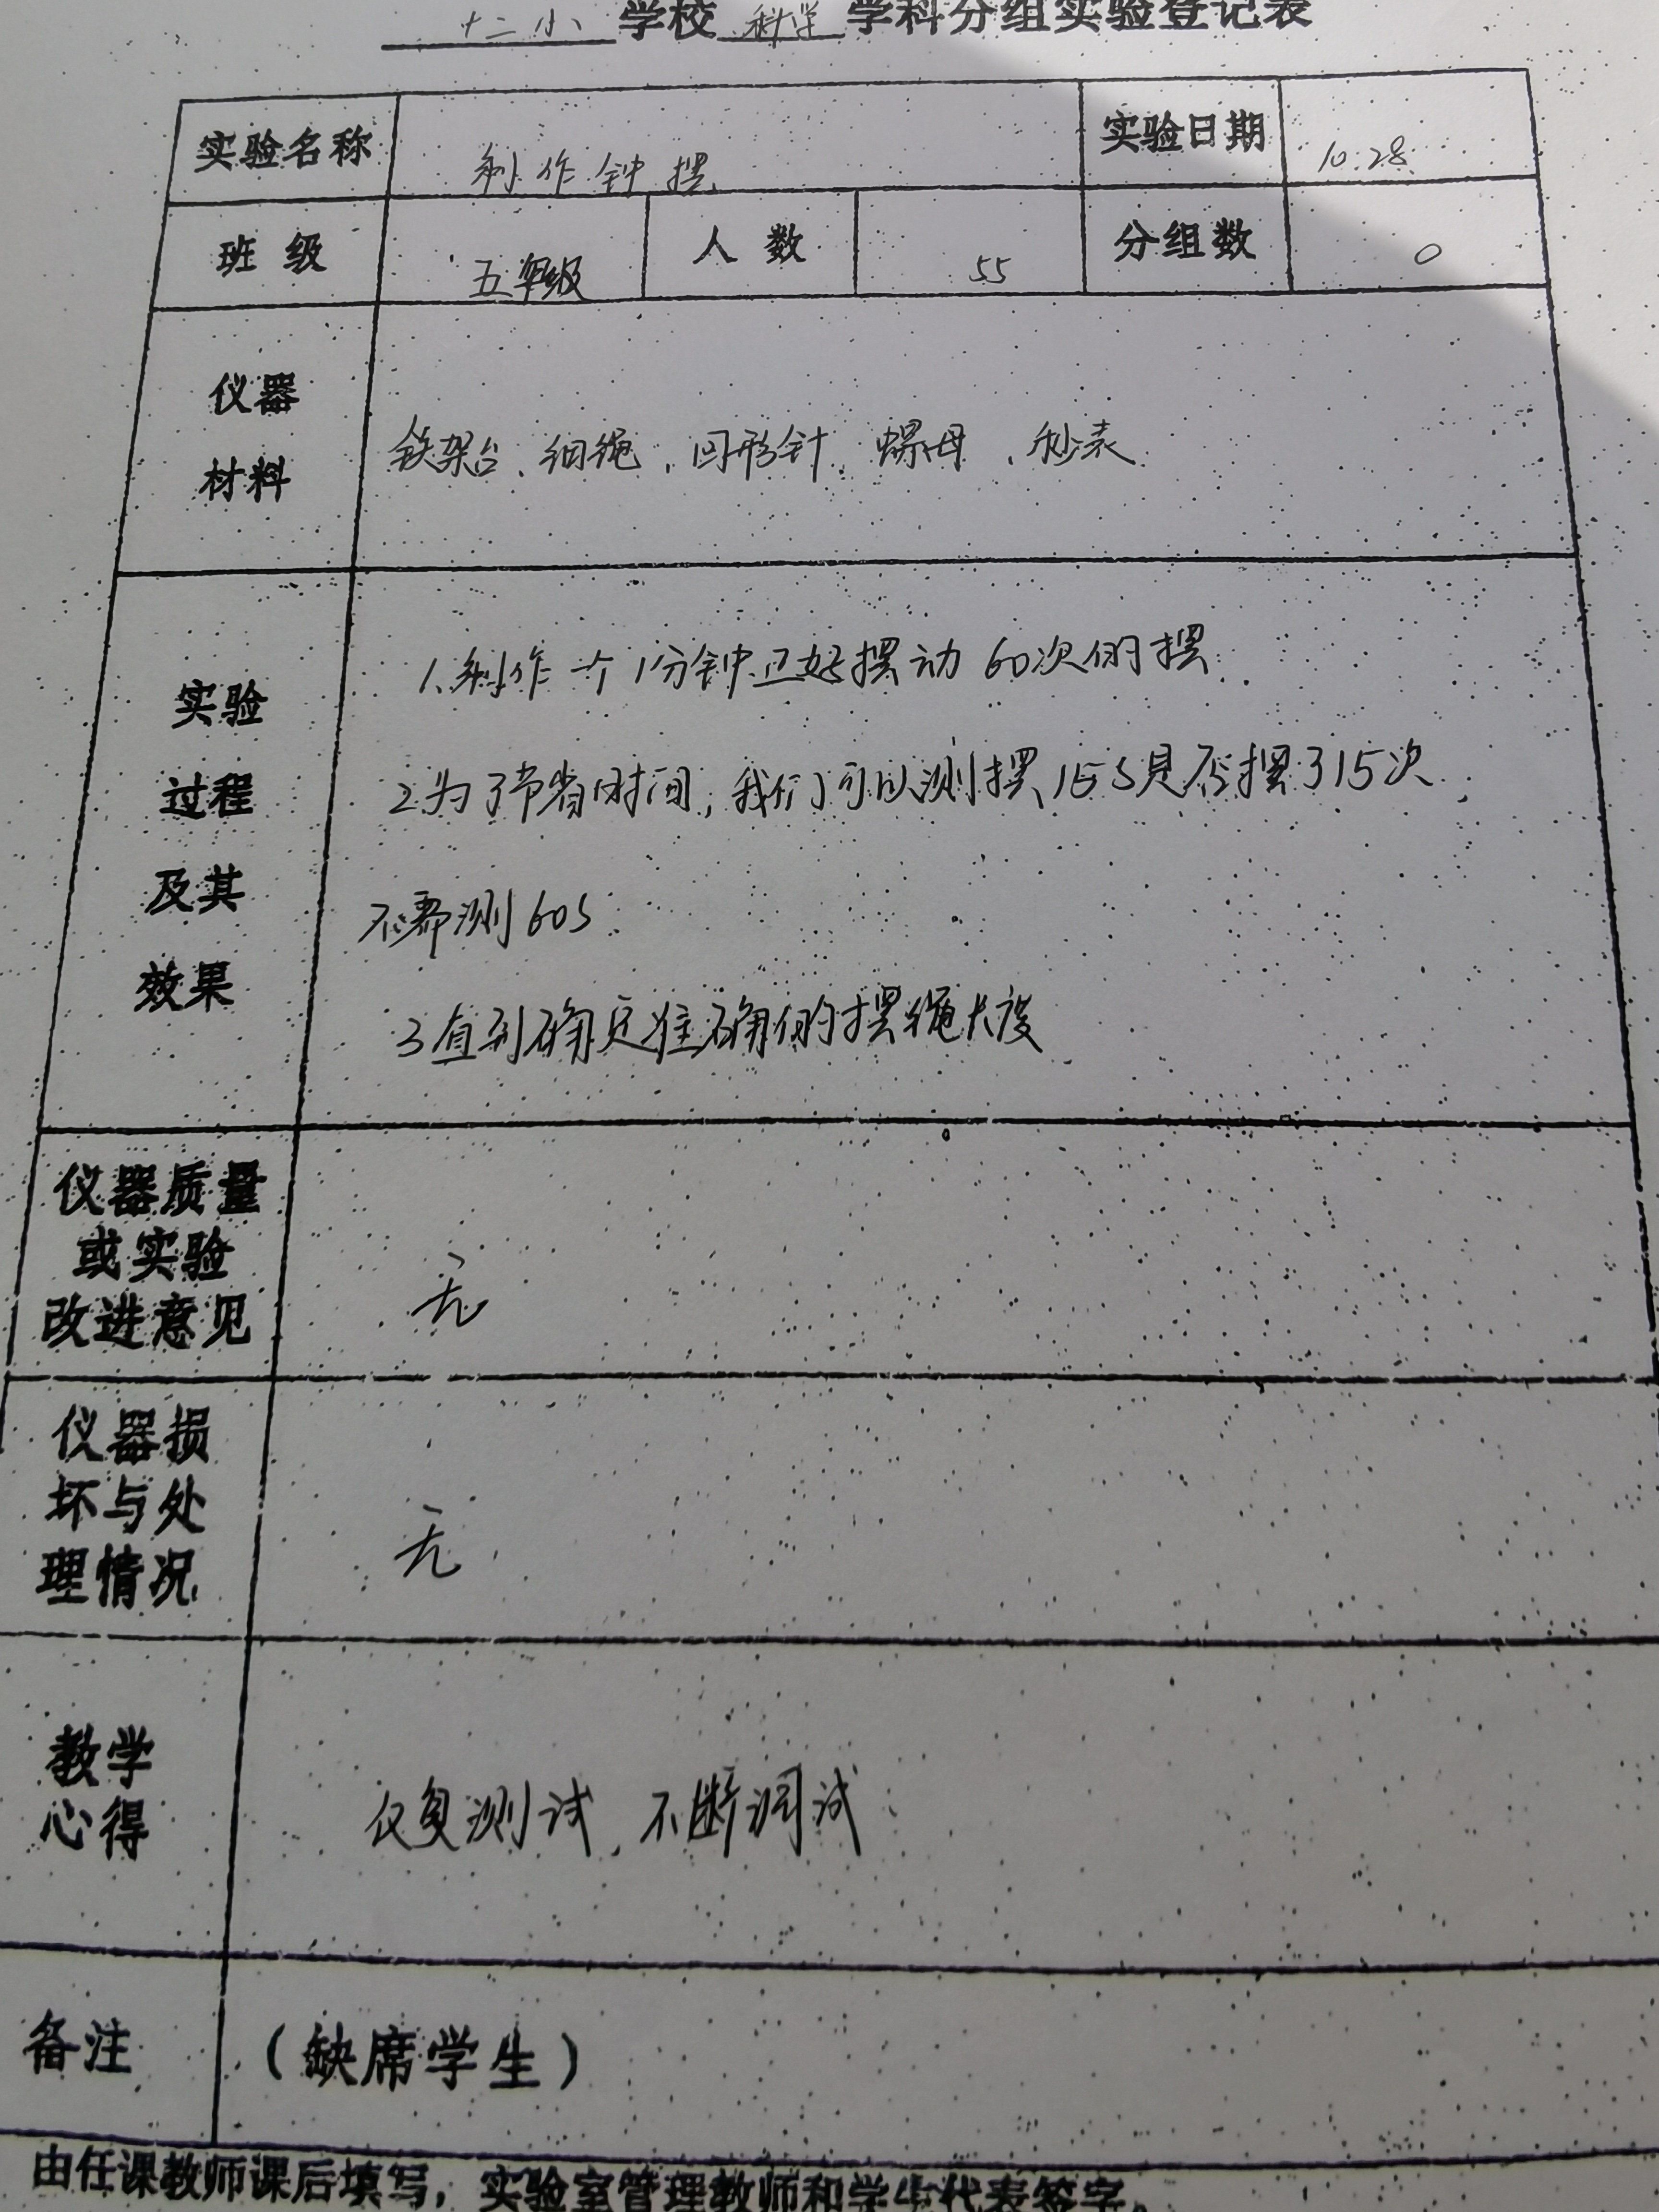 十二小 学校 科学 学科分组实验登记表
实验名称 制作钟摆 实验日期 10.28
班级 五年级 人数 55 分组数 0
仪器
材料
铁架台、细绳、回形针、螺母、秒表
实验
过程
及其
效果
1.制作一个1分钟正好摆动60次的摆
2.为了节省时间,我们可以测摆15S是否摆了15次,
不需测60S.
3直到确定准确的摆绳长度
仪器质量
或实验
改进意见
无
仪器损
坏与处
理情况
无
教学
心得
反复测试,不断调试
备注 (缺席学生)
由任课教师课后填写,实验室管理教师和学生代表签字。